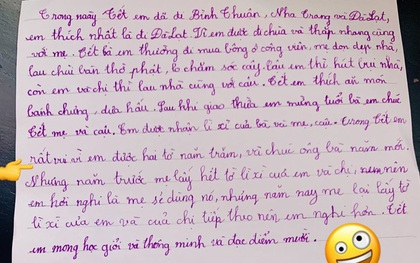 Trong ngày Tết em đã đi Bình Thuận, Nha Trang và Đà Lạt,
em thích nhất là đi Đà Lạt vì em được đi chùa và thắp nhang cùng
với mẹ. Tết bà em thường đi mua bông ở công viên, mẹ dọn dẹp nhà,
lau chùi bàn thờ phật, cô chăm sóc cây. cậu em thì hút bụi nhà,
còn em và chị thì lau nhà cùng với cậu. Tết em thích ăn món
bánh chưng, dưa hấu. Sau khi giao thừa em mừng tuổi bà em chúc
Tết mẹ và cậu. Em được nhận lì xì của bà và mẹ, cậu. trong Tết em
rất vui vì em được hai tờ năm trăm, và chúc ông bà năm mới.
Nhưng năm trước mẹ lấy hết tờ lì xì của em và chị, nên
em hơi nghi là mẹ sẽ dùng nó, nhưng năm nay mẹ lại lấy tờ
lì xì của em và của chị tiếp theo nên em nghi hơn. Tết
em mong học giỏi và thông minh và đạc điểm mười.